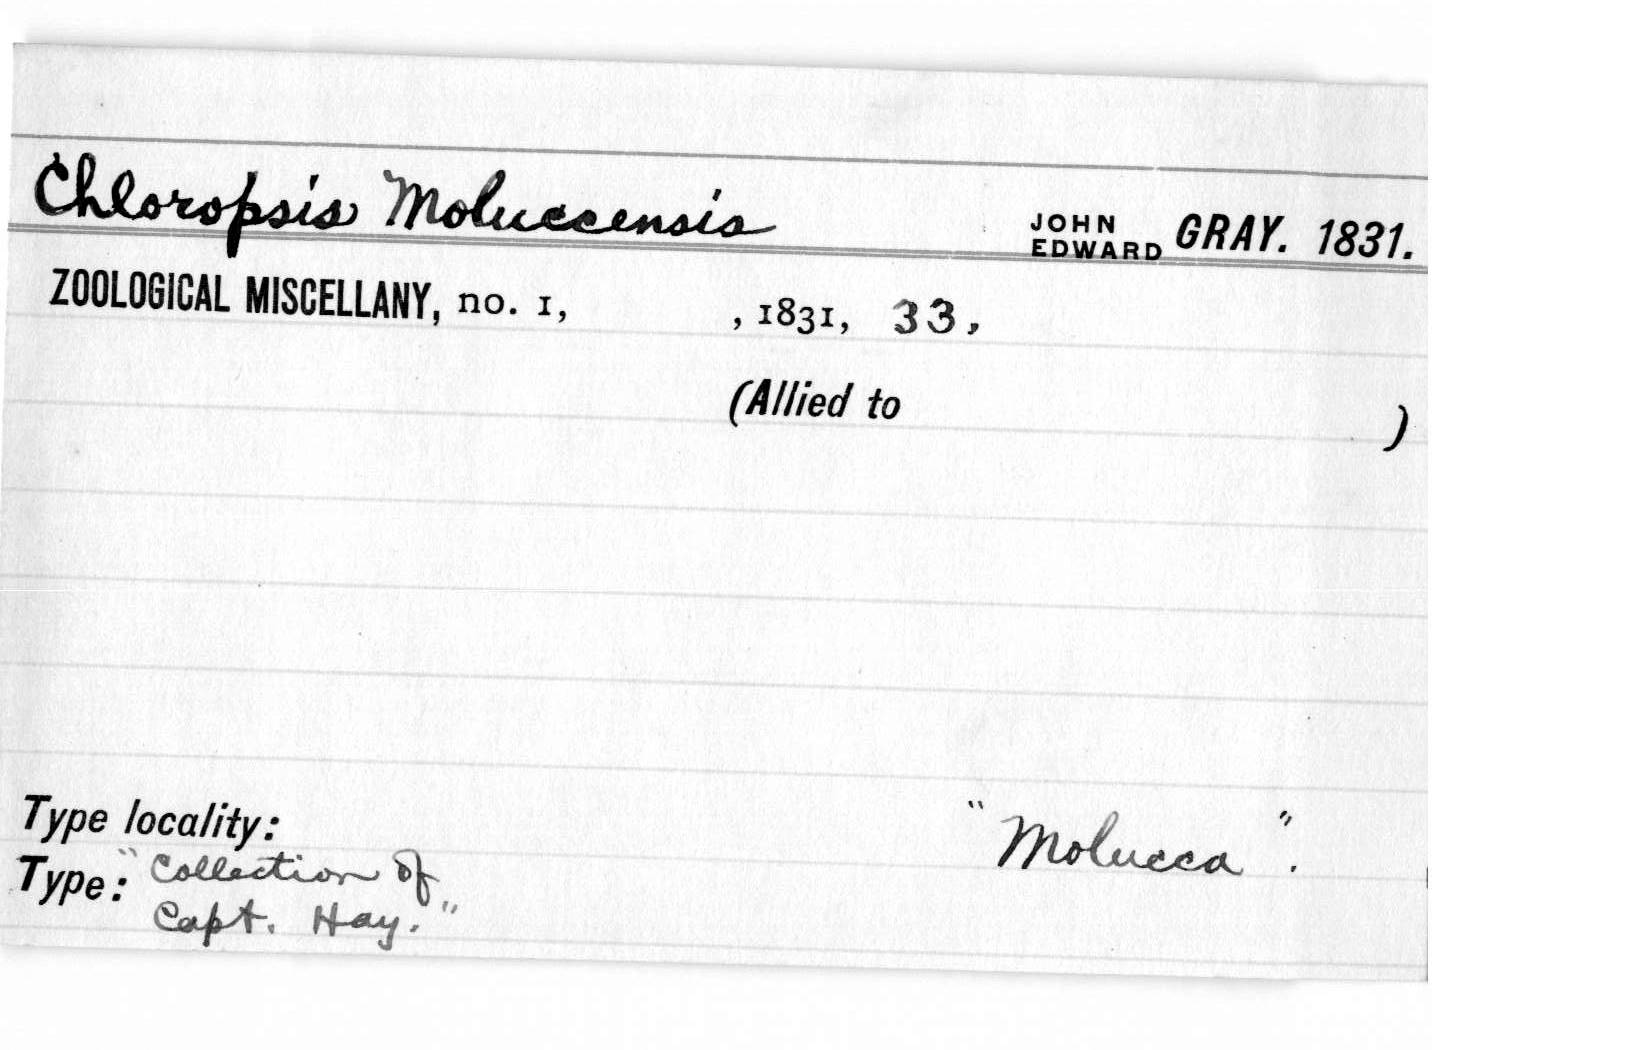 Chloropsis Moluccensis JOHN EDWARD GRAY. 1831.
ZOOLOGICAL MISCELLANY, no. 1, , 1831, 33,
(Allied to )
Type locality: "Molucca".
Type: "Collection of
Capt. Hay."